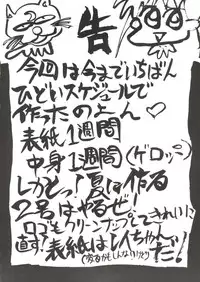 告
今回は今までいちばん
ひどいスケジュールで
作ったのよん♡
表紙1週間
中身1週間(ゲロッ)
しかもっ!夏は作る
2号はやるぜ!
ロゴもクリーンナップしてきれいに
直す!表紙はしいちゃん
だ!